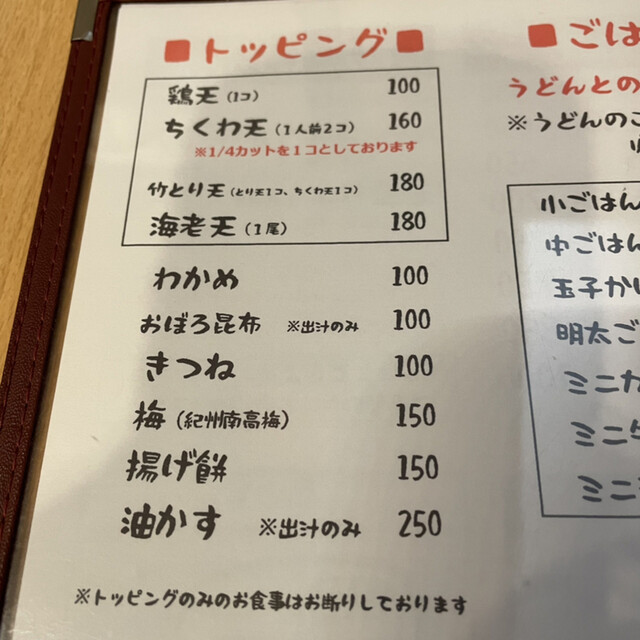 ■トッピング■
鶏天(1コ) 100
ちくわ天(1人前2コ) 160
※1/4カットを1コとしております
竹とり天(とり天1コ、ちくわ天1コ) 180
海老天(1尾) 180
わかめ 100
おぼろ昆布 ※出汁のみ 100
きつね 100
梅(紀州南高梅) 150
揚げ餅 150
油かす ※出汁のみ 250
※トッピングのみのお食事はお断りしております
■ごは
うどんとの
※うどんのこ
小ごはん
中ごはん
玉子か
明太ご
ミニカ
ミニ
ミニ